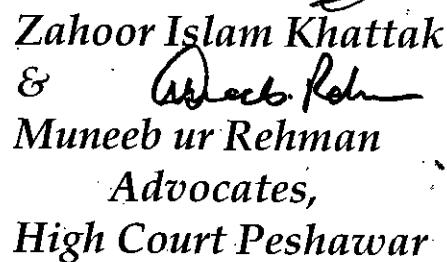 Zahoor Islam Khattak
&
Muneeb ur Rehman
Advocates,
High Court Peshawar